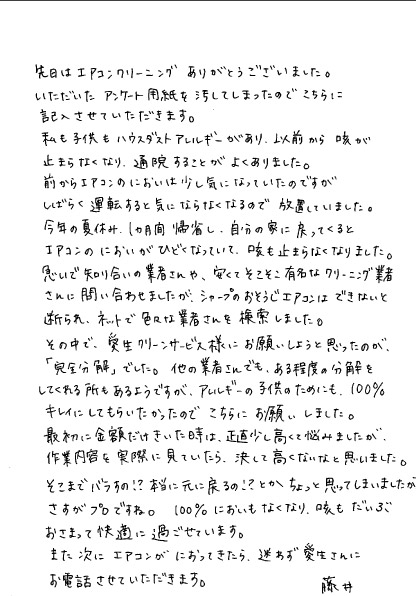 先日はエアコンクリーニング ありがとうございました。
いただいた アンケート用紙を 汚してしまったので こちらに
記入させていただきます。
私も子供も ハウスダストアレルギーがあり、以前から 咳が
止まらなくなり、通院することが よくありました。
前からエアコンのにおいは 少し気になっていたのですが
しばらく 運転すると気にならなくなるので 放置していました。
今年の夏休み、1ヵ月間 帰省し、自分の家に 戻ってくると
エアコンの においがひどくなっていて、咳も止まらなくなりました。
急いで 知り合いの業者さんや、安くてそこそこ有名な クリーニング業者
さんに 問い合わせましたが、シャープのおそうじエアコンは できないと
断られ、ネットで 色々な業者さんを 検索しました。
その中で、愛生クリーンサービス様に お願いしようと思ったのが、
「完全分解」でした。他の業者さんでも、ある程度の分解を
してくれる所もあるようですが、アレルギーの子供のためにも、100%
キレイにしてもらいたかったので こちらに お願いしました。
最初に 金額だけきいた時は、正直少し高くて悩みましたが、
作業内容を 実際に見ていたら、決して 高くないなと 思いました。
そこまでバラすの!?本当に元に戻るの!?とか、ちょっと思ってしまいましたが
さすがプロですね。100%においもなくなり、咳もだいぶ
おさまって快適に 過ごせています。
また 次に エアコンが におってきたら、迷わず 愛生さんに
お電話させていただきます。
藤井